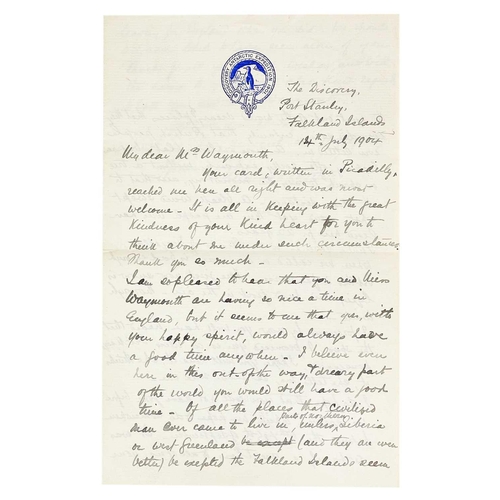 DISCOVERY ANTARCTIC EXPEDITION 1901
The Discovery,
Port Stanley,
Falkland Islands
14th July 1904
My dear Mrs Waymouth,
Your card, written in Picadilly,
reached me here all right and was most
welcome - It is all in keeping with the great
kindness of your kind heart for you to
think about me under such circumstances.
Thank you so much -
I am so pleased to hear that you and Miss
Waymouth are having so nice a time in
England, but it seems to me that you, with
your happy spirit, would always have
a good time anywhere - I believe even
here in this out-of-the way, & dreary part
of the world, you would still have a good
time - Of all the places that civilized
man ever came to live in, unless, Siberia
or west Greenland be except (and they are even
better) be excepted the Falkland Islands seem